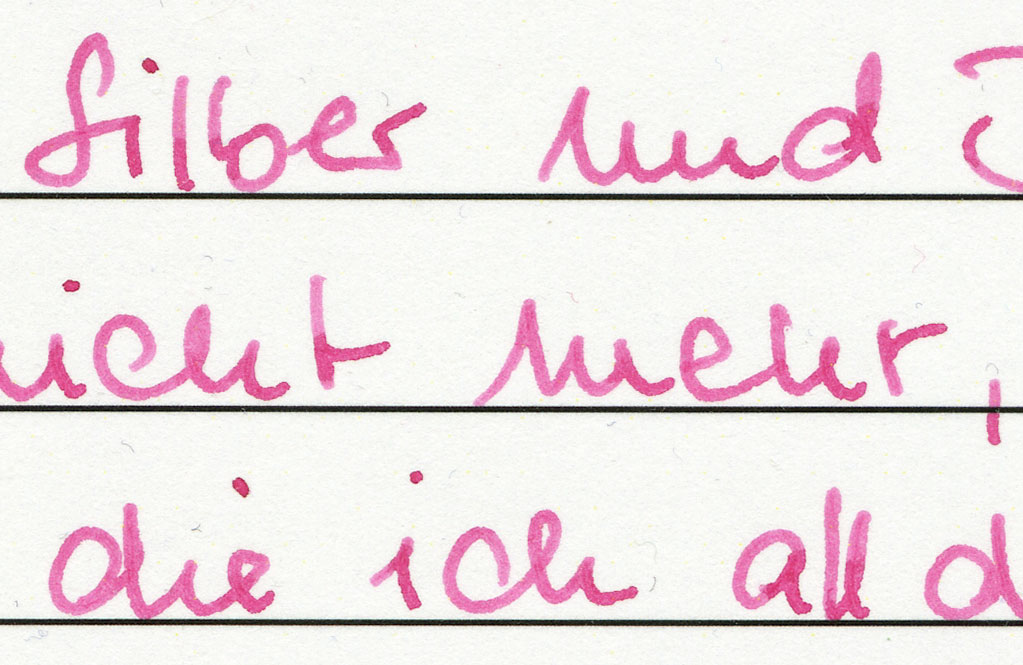 Silber und
nicht mehr,
die ich all